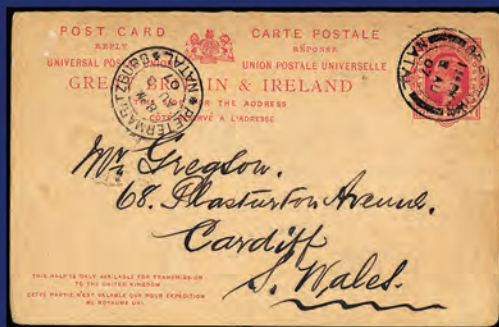 POST CARD CARTE POSTALE
REPLY RÉPONSE
UNIVERSAL POSTAL UNION UNION POSTALE UNIVERSELLE
GREAT BRITAIN & IRELAND
THE ADDRESS
CÔTÉ RÉSERVÉ A L'ADRESSE
PIETERMARITZBURG
NATAL
AU
07
NATAL
AU
07
Mr. Gregson.
68. Plasturton Avenue.
Cardiff
S. Wales.
THIS HALF IS ONLY AVAILABLE FOR TRANSMISSION
TO THE UNITED KINGDOM
CETTE PARTIE N'EST VALABLE QUE POUR EXPEDITION
AU ROYAUME UNI.